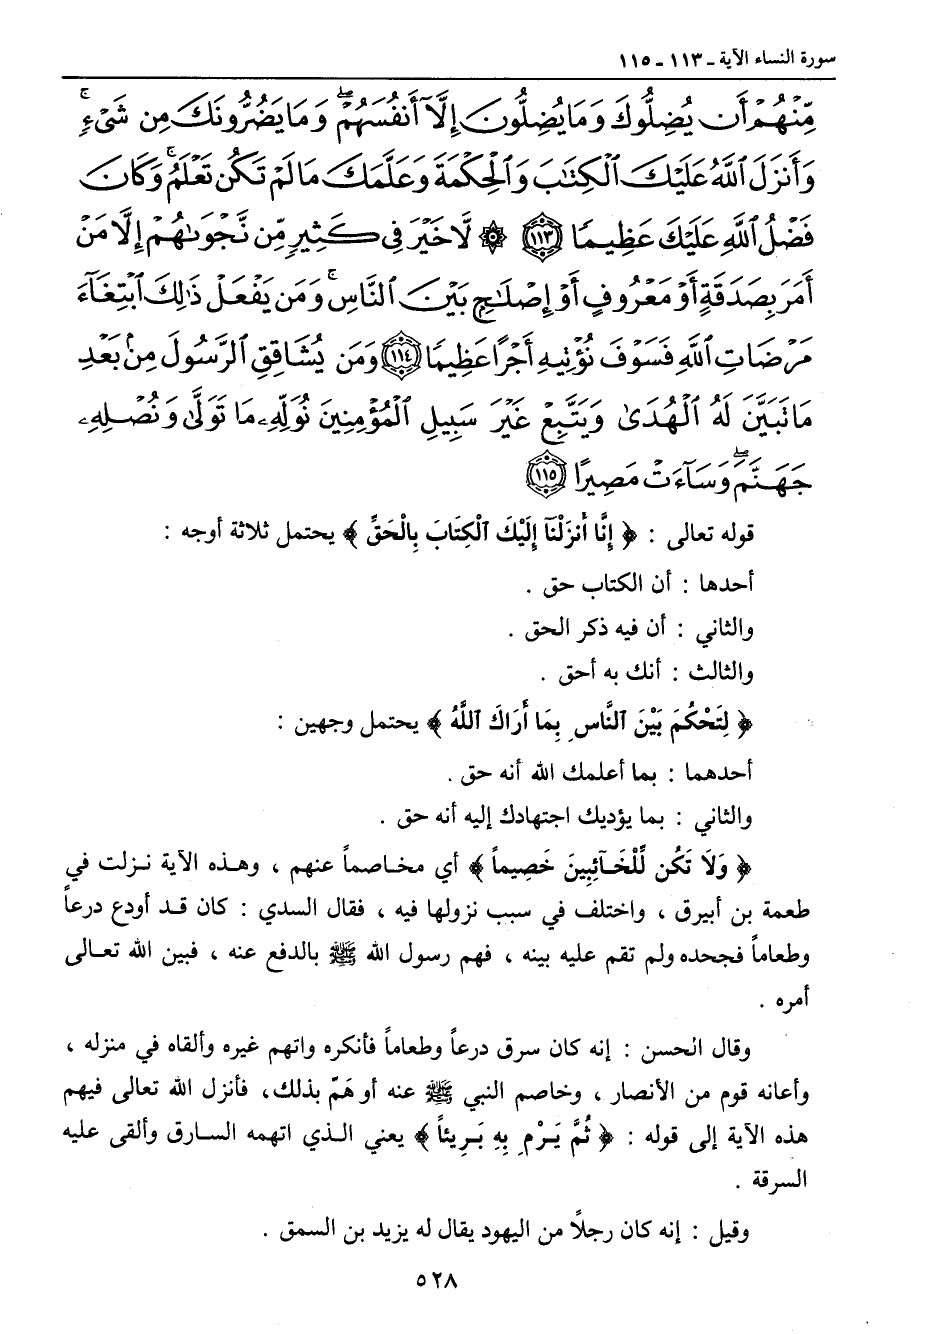 سورة النساء الآية ـ ١١٣ ـ ١١٥
مِّنْهُمْ أَن يُضِلُّوكَ وَمَا يُضِلُّونَ إِلَّآ أَنفُسَهُمْ ۖ وَمَا يَضُرُّونَكَ مِن شَىْءٍ ۚ
وَأَنزَلَ ٱللَّهُ عَلَيْكَ ٱلْكِتَٰبَ وَٱلْحِكْمَةَ وَعَلَّمَكَ مَا لَمْ تَكُن تَعْلَمُ ۚ وَكَانَ
فَضْلُ ٱللَّهِ عَلَيْكَ عَظِيمًا ﴿١١٣﴾ ۞ لَّا خَيْرَ فِى كَثِيرٍ مِّن نَّجْوَىٰهُمْ إِلَّا مَنْ
أَمَرَ بِصَدَقَةٍ أَوْ مَعْرُوفٍ أَوْ إِصْلَٰحٍ بَيْنَ ٱلنَّاسِ ۚ وَمَن يَفْعَلْ ذَٰلِكَ ٱبْتِغَآءَ
مَرْضَاتِ ٱللَّهِ فَسَوْفَ نُؤْتِيهِ أَجْرًا عَظِيمًا ﴿١١٤﴾ وَمَن يُشَاقِقِ ٱلرَّسُولَ مِنۢ بَعْدِ
مَا تَبَيَّنَ لَهُ ٱلْهُدَىٰ وَيَتَّبِعْ غَيْرَ سَبِيلِ ٱلْمُؤْمِنِينَ نُوَلِّهِۦ مَا تَوَلَّىٰ وَنُصْلِهِۦ
جَهَنَّمَ ۖ وَسَآءَتْ مَصِيرًا ﴿١١٥﴾
قوله تعالى : ﴿ إِنَّا أَنزَلْنَآ إِلَيْكَ ٱلْكِتَابَ بِالْحَقِّ ﴾ يحتمل ثلاثة أوجه :
أحدها : أن الكتاب حق .
والثاني : أن فيه ذكر الحق .
والثالث : أنك به أحق .
﴿ لِتَحْكُمَ بَيْنَ ٱلنَّاسِ بِمَا أَرَاكَ ٱللَّهُ ﴾ يحتمل وجهين :
أحدهما : بما أعلمك الله أنه حق .
والثاني : بما يؤديك اجتهادك إليه أنه حق .
﴿ وَلَا تَكُن لِّلْخَآئِنِينَ خَصِيماً ﴾ أي مخاصماً عنهم ، وهذه الآية نزلت في
طعمة بن أبيرق ، واختلف في سبب نزولها فيه ، فقال السدي : كان قد أودع درعاً
وطعاماً فجحده ولم تقم عليه بينه ، فهم رسول الله ﷺ بالدفع عنه ، فبين الله تعالى
أمره .
وقال الحسن : إنه كان سرق درعاً وطعاماً فأنكره واتهم غيره وألقاه في منزله ،
وأعانه قوم من الأنصار ، وخاصم النبي ﷺ عنه أو هَمّ بذلك، فأنزل الله تعالى فيهم
هذه الآية إلى قوله : ﴿ ثُمَّ يَرْمِ بِهِ بَرِيئاً ﴾ يعني الذي اتهمه السارق وألقى عليه
السرقة .
وقيل : إنه كان رجلاً من اليهود يقال له يزيد بن السمق .
٥٢٨